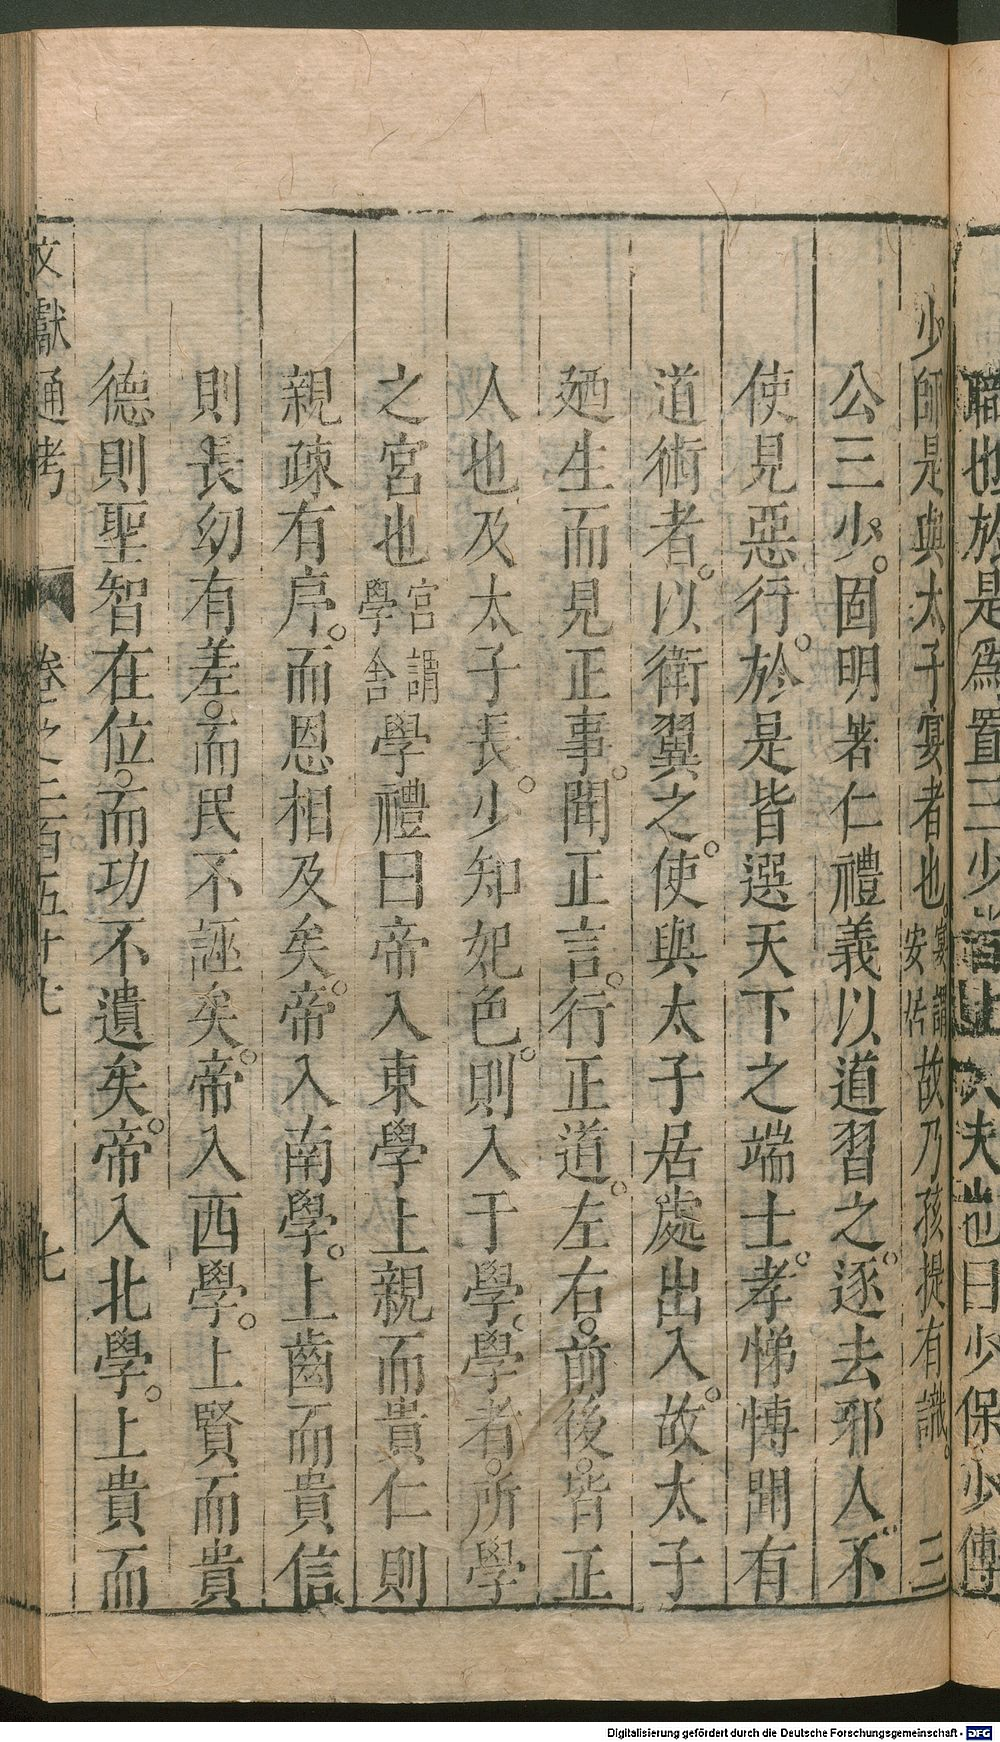 職也於是爲置三少皆上大夫也曰少保少傅
少師是與太子宴者也宴謂安居故乃孩提有識。三
公三少。固明著仁禮義以道習之。逐去邪人不
使見惡行。於是皆選天下之端士。孝悌博聞有
道術者。以衛翼之。使與太子居處出入。故太子
廼生而見正事。聞正言。行正道。左右。前後。皆正
人也及太子長。少知妃色。則入于學。學者。所學
之宮也官謂學舍學禮曰帝入東學上親而貴仁則
親疎有序。而恩相及矣。帝入南學。上齒而貴信
則長幼有差。而民不誣矣。帝入西學。上賢而貴
德則聖智在位。而功不遺矣。帝入北學。上貴而
文獻通考 卷之二百五十七 七
Digitalisierung gefördert durch die Deutsche Forschungsgemeinschaft - DFG